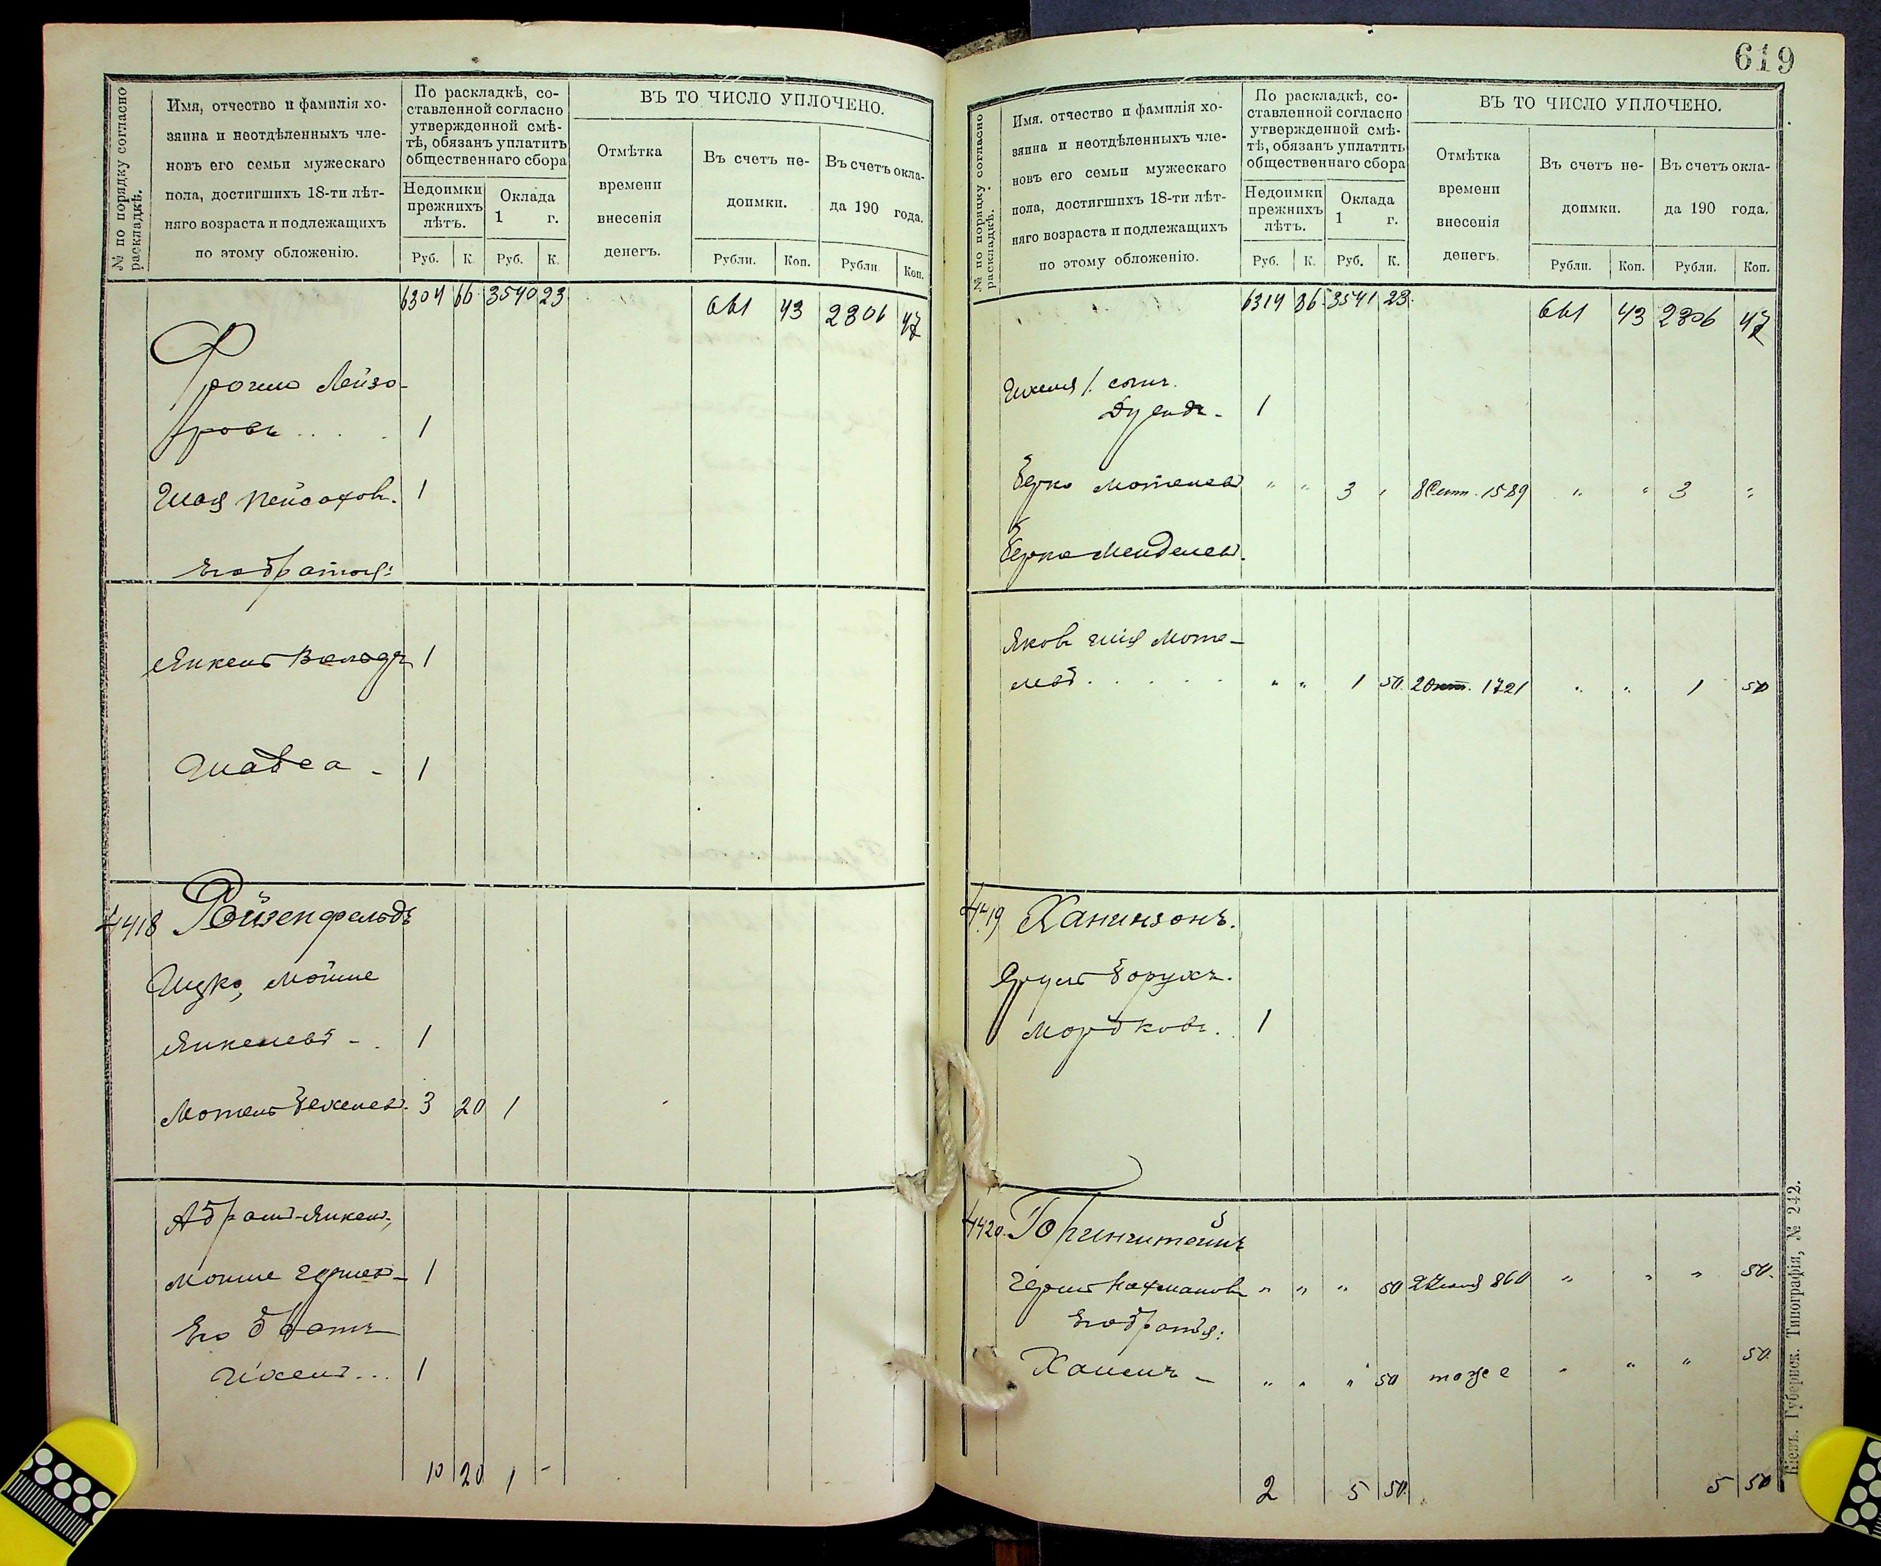 619
№ по порядку согласно раскладкѣ.
Имя, отчество и фамилія хо-
зяина и неотдѣленныхъ чле-
новъ его семьи мужескаго
пола, достигшихъ 18-ти лѣт-
няго возраста и подлежащихъ
по этому обложенію.
По раскладкѣ, со-
ставленной согласно
утвержденной смѣ-
тѣ, обязанъ уплатить
общественнаго сбора
Недоимки прежнихъ лѣтъ.
Оклада 1 г.
Руб. К. Руб. К.
ВЪ ТО ЧИСЛО УПЛОЧЕНО.
Отмѣтка
времени
внесенія
денегъ.
Въ счетъ не-
доимки.
Въ счетъ окла-
да 190 года.
Рубли. Коп. Рубли Коп.
6304 66 3540 23 661 43 2806 47
Фроимъ Лейзо-
ровъ . . . . 1
Шая Пейсахов. 1
Его братья:
Янкель Вольфъ 1
Шавса - 1
4418 Ройзенфельдъ
Ицко, Мойше
Янкелевъ - . 1
Мотель Хехелев. 3 20 1
Абрам-Янкель,
Мойше Гершев- 1
Его братъ
Ихель . . . 1
10 20 1 -
№ по порядку согласно раскладкѣ.
Имя. отчество и фамилія хо-
зяина и неотдѣленныхъ чле-
новъ его семьи мужескаго
пола, достигшихъ 18-ти лѣт-
няго возраста и подлежащихъ
по этому обложенію.
По раскладкѣ, со-
ставленной согласно
утвержденной смѣ-
тѣ, обязанъ уплатить
общественнаго сбора
Недоимки прежнихъ лѣтъ.
Оклада 1 г.
Руб. К. Руб. К.
ВЪ ТО ЧИСЛО УПЛОЧЕНО.
Отмѣтка
времени
внесенія
денегъ.
Въ счетъ не-
доимки.
Въ счетъ окла-
да 190 года.
Рубли. Коп. Рубли. Коп.
6314 86 3541 23 661 43 2806 47
Ихеля 1. сынъ.
Дувидъ - 1
Берко Мотелев " " 3 " 8 Сент. 1589 " " 3 "
Берко Менделев.
Яковъ Шия Моте-
левъ . . . . . " " 1 50 2 Окт. 1721 " " 1 50
4419 Ханинзонъ.
Сруль Борухъ.
Мордковъ. 1
4420. Горинштейнъ
Гершъ Нахмановъ " " " 50 27 Июня 860 " " " 50.
Его братья:
Хаимъ - " " " 50 тоже " " " 50.
2 5 50. 5 50
Кіевъ. Губернск. Типографія, № 242.